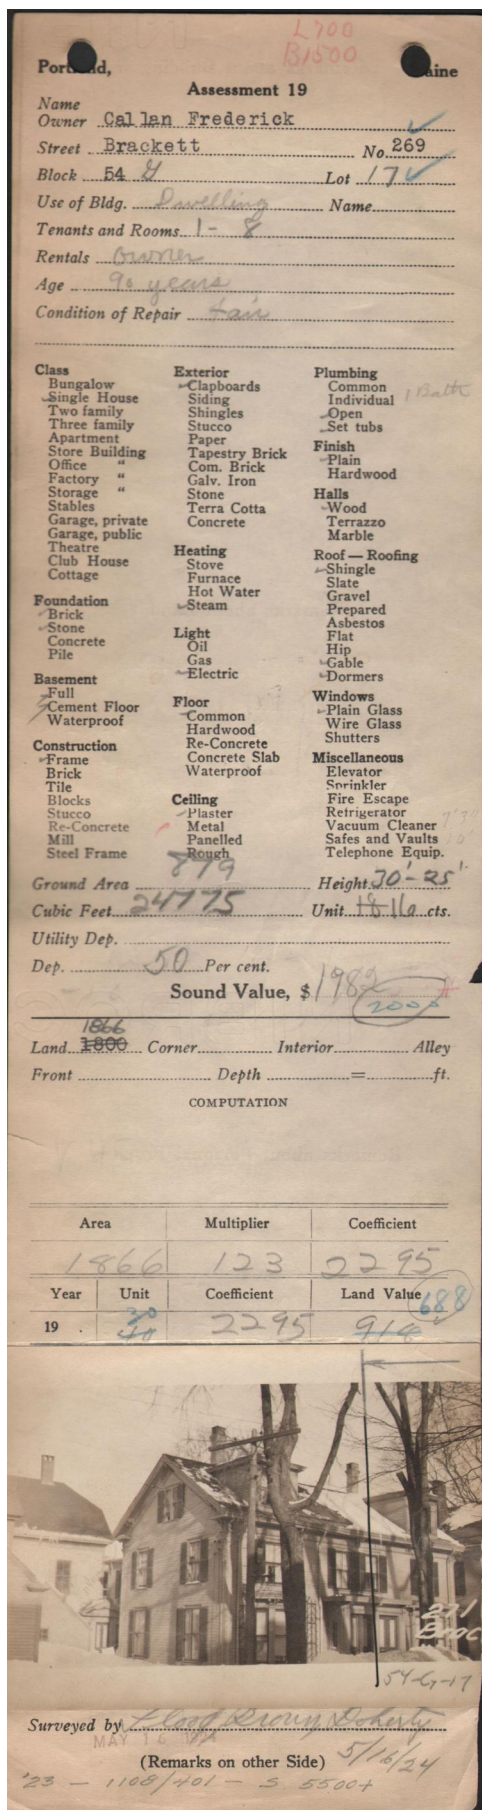 L700
B1500
Portland, Maine
Assessment 19
Name
Owner Callan Frederick
Street Brackett No. 269
Block 54 G Lot 17
Use of Bldg. Dwelling Name
Tenants and Rooms 1 - 8
Rentals owner
Age 90 years
Condition of Repair Fair
Class
Bungalow
Single House
Two family
Three family
Apartment
Store Building
Office "
Factory "
Storage "
Stables
Garage, private
Garage, public
Theatre
Club House
Cottage
Foundation
Brick
Stone
Concrete
Pile
Basement
Full
Cement Floor
Waterproof
Construction
Frame
Brick
Tile
Blocks
Stucco
Re-Concrete
Mill
Steel Frame
Exterior
Clapboards
Siding
Shingles
Stucco
Paper
Tapestry Brick
Com. Brick
Galv. Iron
Stone
Terra Cotta
Concrete
Heating
Stove
Furnace
Hot Water
Steam
Light
Oil
Gas
Electric
Floor
Common
Hardwood
Re-Concrete
Concrete Slab
Waterproof
Ceiling
Plaster
Metal
Panelled
Rough
Plumbing
Common
Individual 1 Bath
Open
Set tubs
Finish
Plain
Hardwood
Halls
Wood
Terrazzo
Marble
Roof — Roofing
Shingle
Slate
Gravel
Prepared
Asbestos
Flat
Hip
Gable
Dormers
Windows
Plain Glass
Wire Glass
Shutters
Miscellaneous
Elevator
Sprinkler
Fire Escape
Refrigerator
Vacuum Cleaner
Safes and Vaults
Telephone Equip.
Ground Area 879 Height 30'-25'
Cubic Feet 24775 Unit 18 16 cts.
Utility Dep.
Dep. 50 Per cent.
Sound Value, $ 1982
2000
1866
Land 1800 Corner Interior Alley
Front Depth = ft.
COMPUTATION
Area Multiplier Coefficient
1866 123 2295
Year Unit Coefficient Land Value 688
30
19 40 2295 918
271
Brac
54-G-17
Surveyed by Flood Brown Doherty
MAY 16
5/16/24
(Remarks on other Side)
'23 - 1108/401 - S 5500+